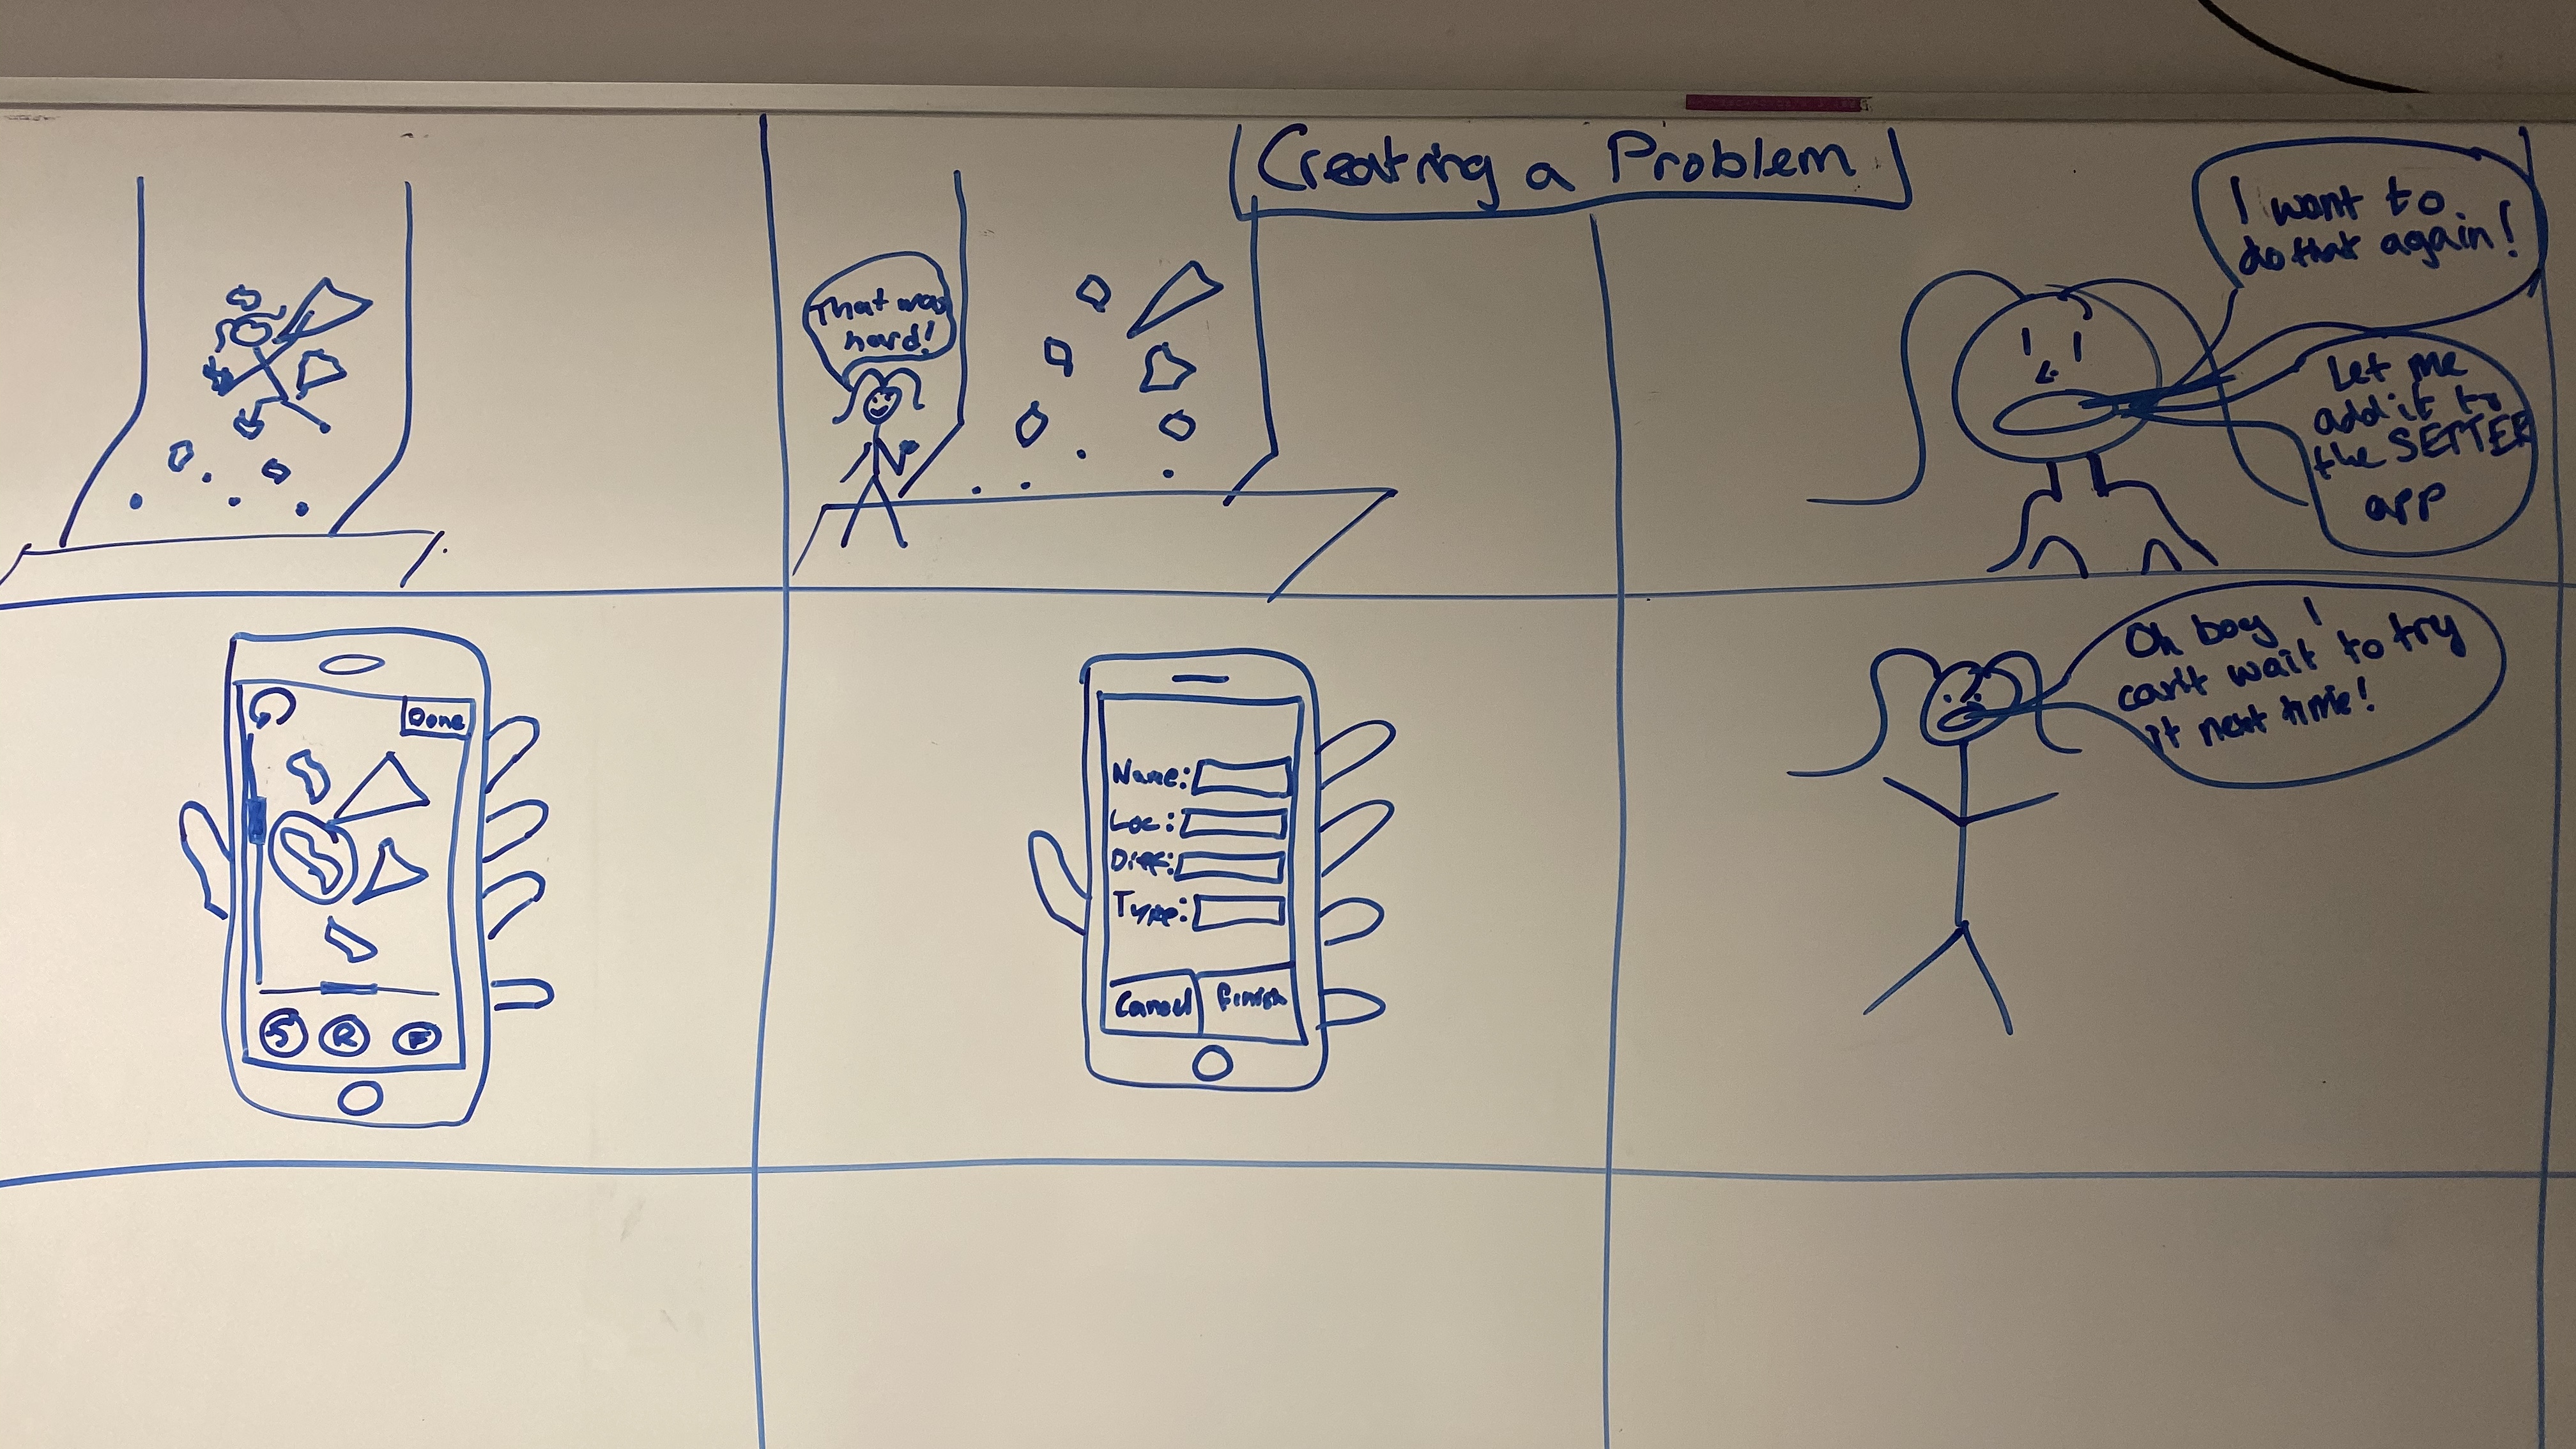 Creating a Problem
That was
hard!
I want to
do that again!
Let me
add it to
the SETTER
app
Done
S R F
Name:
Loc:
Diff:
Type:
Cancel Finish
Oh boy I
can't wait to try
it next time!